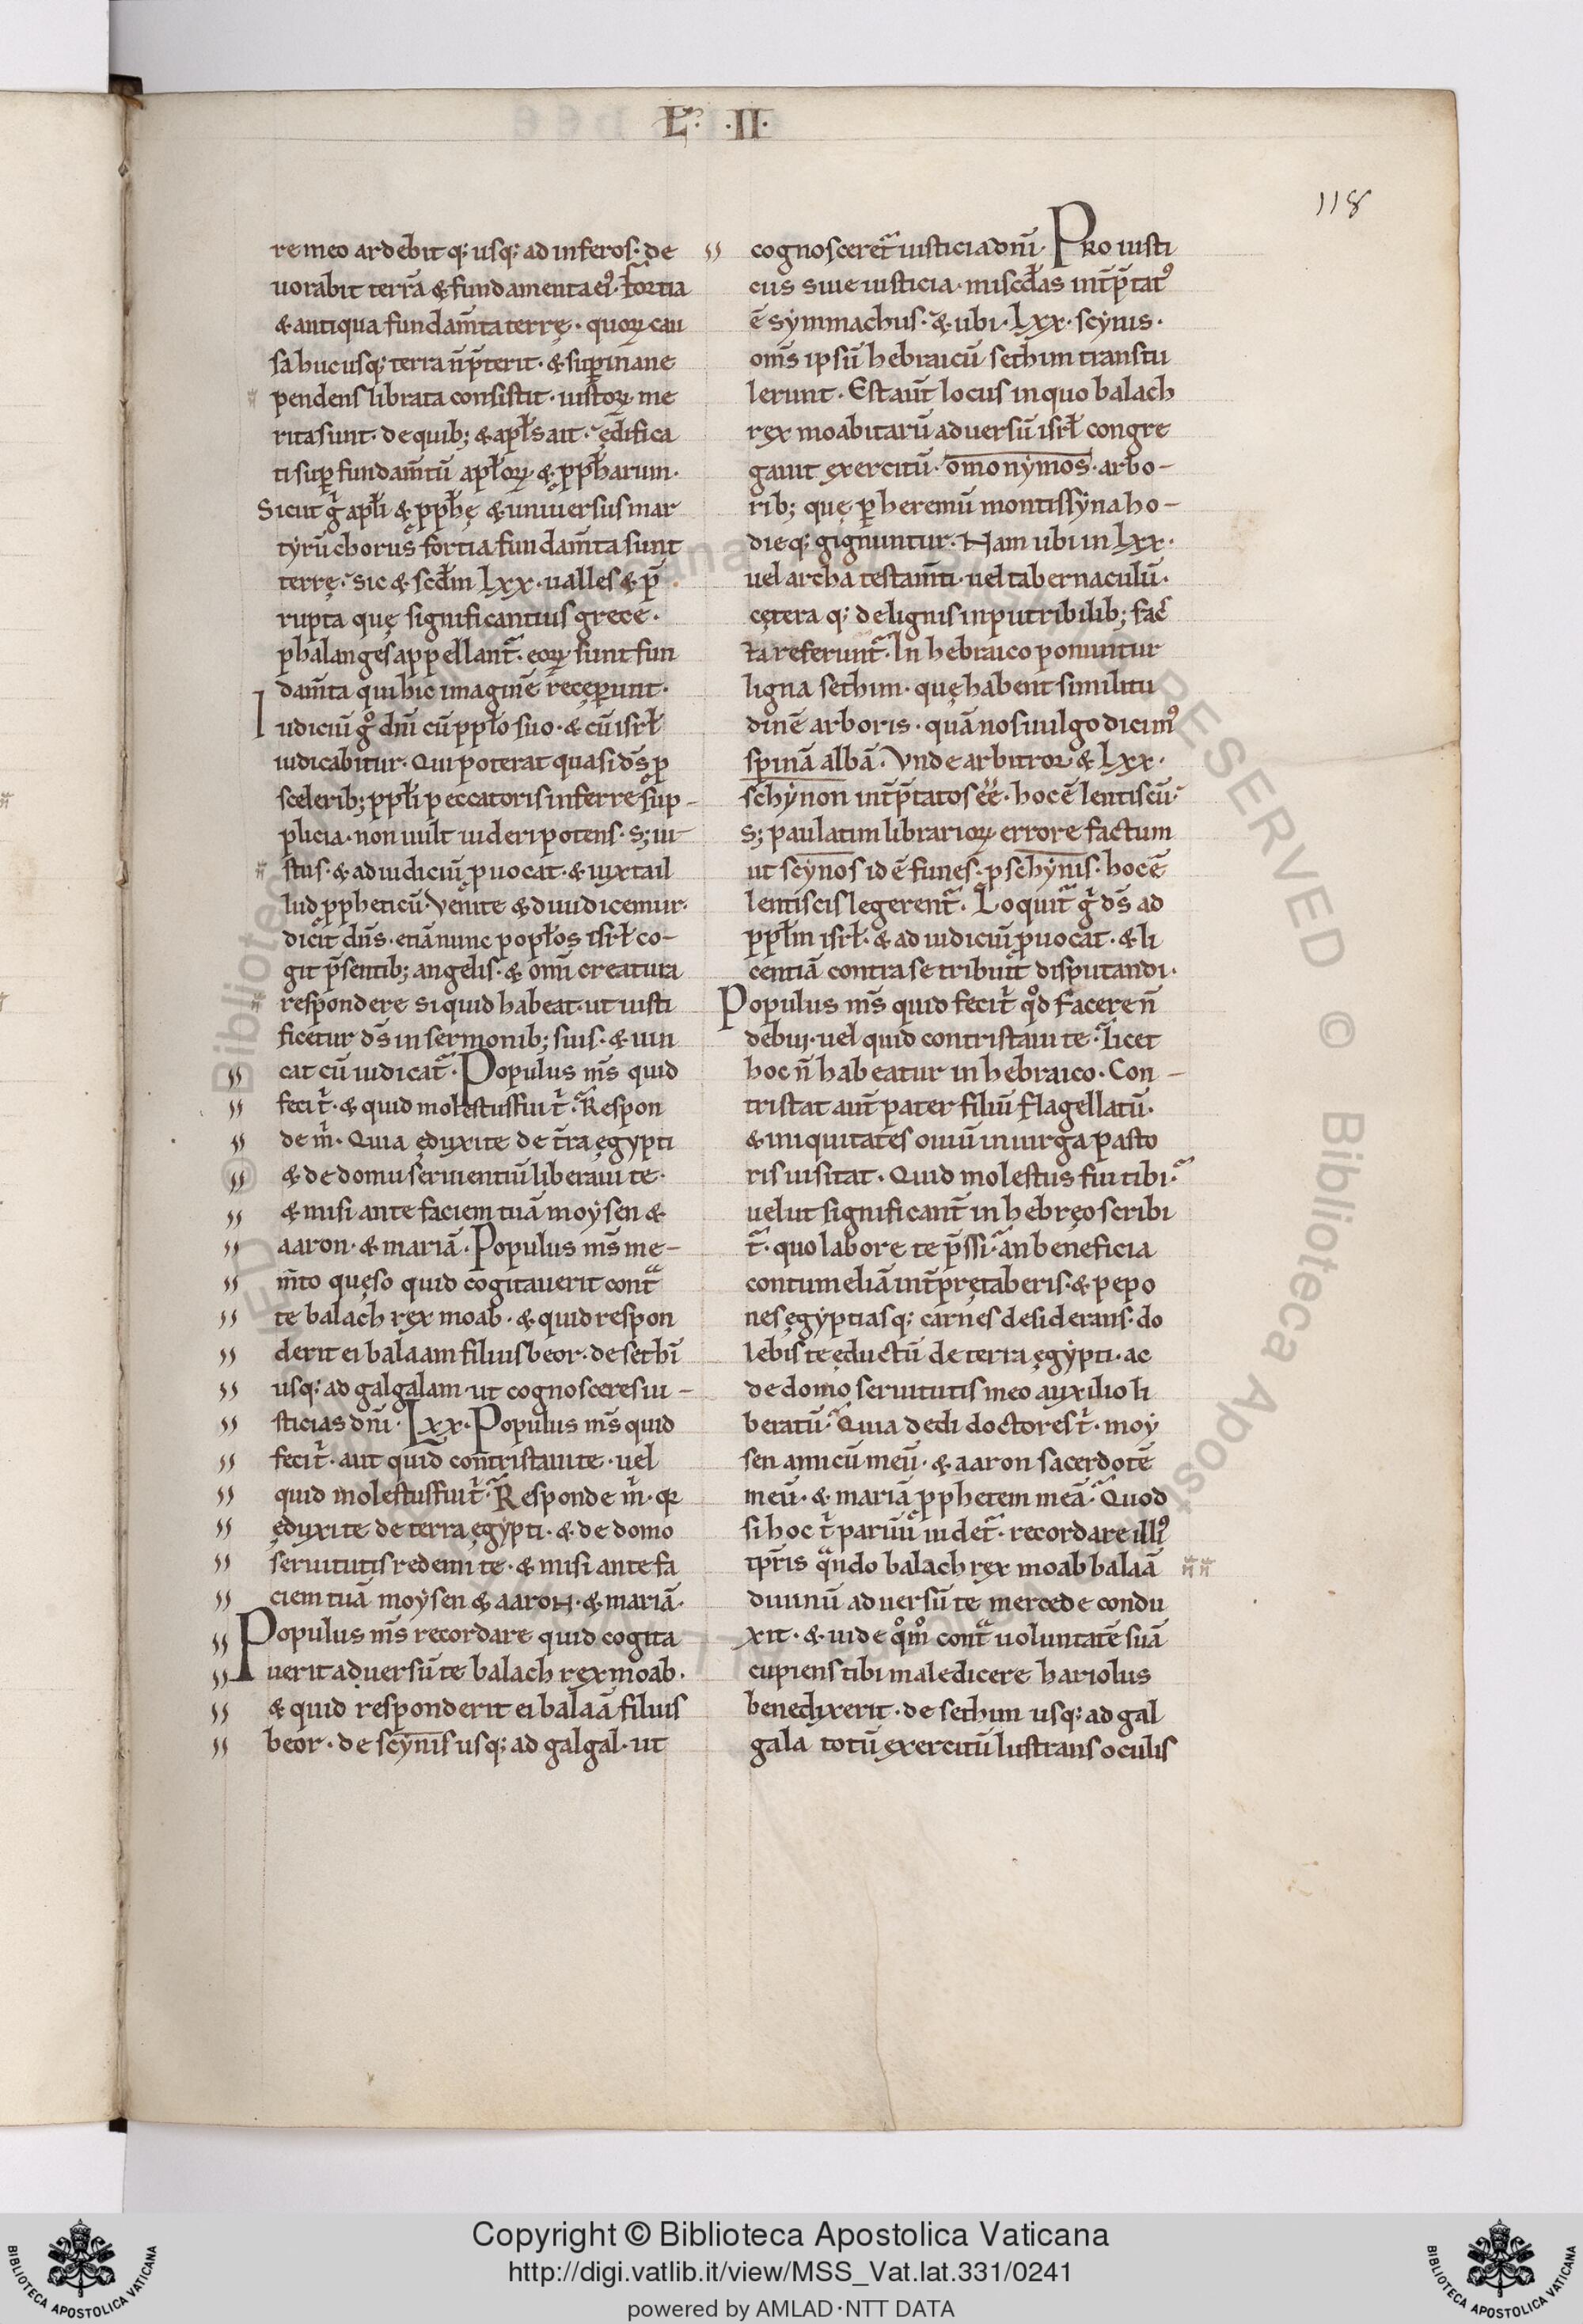 L̃· ·II·
118
re meo ardebit q; usq; ad inferos· de
uorabit terrā & fundamenta ei᷒· fortia
& antiqua fundam̄ta terrę· quoꝝ cau
sa huc usq; terra n̄ p̄terit· & suꝑ inane
pendens librata consistit· iustoꝝ me
rita sunt· de quib; & apl̄s ait· ędifica
ti suꝑ fundam̄tū apl̄oꝝ & ꝓph̄arum·
Sicut g̊ apl̄i & ꝓph̄ę & uniuersus mar
tyrū chorus fortia fundam̄ta sunt
terrę· sic & scd̄m lxx· ualles & p̄
rupta quę significantius grece·
phalanges appellant᷑· eoꝝ sunt fun
dam̄ta qui hic imaginē receꝑunt·
Iudiciū g̊ dn̄i cū ppl̄o suo· & cū isrł
iudicabitur· Qui poterat quasi ds̄ ꝓ
scelerib; ppl̄i peccatoris inferre sup-
plicia· non uult uideri potens· s; iu-
stus· & ad iudiciū ꝓuocat· & iuxta il
lud ꝓpheticū· Venite & diiudicemur·
dicit dn̄s· etiā nunc popl̄os isrł co-
git p̄sentib; angelis· & om̄i creatura
respondere si quid habeat· ut iusti
ficetur ds̄ in sermonib; suis· & uin
cat cū iudicat᷑· Populus ms̄ quid
feci t̓· & quid molestus fui t̓· Respon
de m̓· Quia eduxi te de t̄ra ęgypti
& de domu seruientiū liberaui te·
& misi ante faciem tuā moysen &
aaron· & mariā· Populus ms̄ me-
m̄to quęso quid cogitauerit contᷓ
te balach rex moab· & quid respon
derit ei balaam filius beor· de sethī
usq; ad galgalam· ut cognosceres iu-
sticias dn̄i· Lxx· Populus ms̄ quid
feci t̓· aut quid con̄tristaui te· uel
quid molestus fui t̓· Responde m̓· qꝛ
eduxi te de terra ęgypti· & de domo
seruitutis redemi te· & misi ante fa
ciem tuā moysen & aaron· & mariā·
Populus ms̄ recordare quid cogita
uerit aduersū te balach rex moab·
& quid responderit ei balaā filius
beor· de scynis usq; ad galgal· ut
cognosceret᷑ iusticia dn̄i· Pro iusti
ciis siue iusticia· misc̄das int̄p̄tat᷒
ē symmachus· & ubi· lxx· scynis·
om̄s ipsū hebraicū sethim transtu
lerunt· Est aūt locus in quo balach
rex moabitarū aduersū isrł congre
gauit exercitū· omonymos· arbo-
rib; quę ꝑ heremū montis syna ho-
dieq; gignuntur· Nam ubi in lxx·
uel archa testam̄ti· uel tabernaculū·
cętera q; de lignis inputribilib; fac
ta referunt᷑· In hebraico ponuntur
ligna sethim· quę habent similitu
dinē arboris· quā nos uulgo dicim᷒
spinā albā· Vnde arbitror & lxx·
schynon int̄p̄tatos ēē· hoc ē lentiscū·
s; paulatim librarioꝝ errore factum
ut scynos id ē funes· ꝓ schynis· hoc ē
lentiscis legerent᷑· Loquit᷑ g̊ ds̄ ad
ppl̄m isrł· & ad iudiciū ꝓuocat· & li
centiā contra se tribuit disputandi·
Populus ms̄ quid feci t̓ qd̊ facere n̄
debui· uel quid contristaui te· licet
hoc n̄ habeatur in hebraico· Con-
tristat aūt pater filiū flagellatū·
& iniquitates ouiū in uirga pasto
ris uisitat· Quid molestus fui tibi·
uelut significant᷑ in hebręo scribi
t᷑· quo labore te p̄ssi· an beneficia
contumeliā int̄prętaberis· & pepo
nes ęgyptias q; carnes desiderans· do
lebis te eductū de terra ęgypti· ac
de domo seruitutis meo auxilio li
beratū· Quia dedi doctores t̓· moy
sen amicū meū· & aaron sacerdotē
meū· & mariā ꝓphetem meā· Quod
si hoc t̓ parūū uidet᷑· recordare illi᷒
tp̄ris qn̄do balach rex moab balaā
diuinū aduersū te mercede condu
xit· & uide qm̊o contᷓ uoluntatē suā
cupiens tibi maledicere hariolus
benedixerit· de sethim usq; ad gal
gala totū exercitū lustrans oculis
Copyright © Biblioteca Apostolica Vaticana
http://digi.vatlib.it/view/MSS_Vat.lat.331/0241
powered by AMLAD·NTT DATA